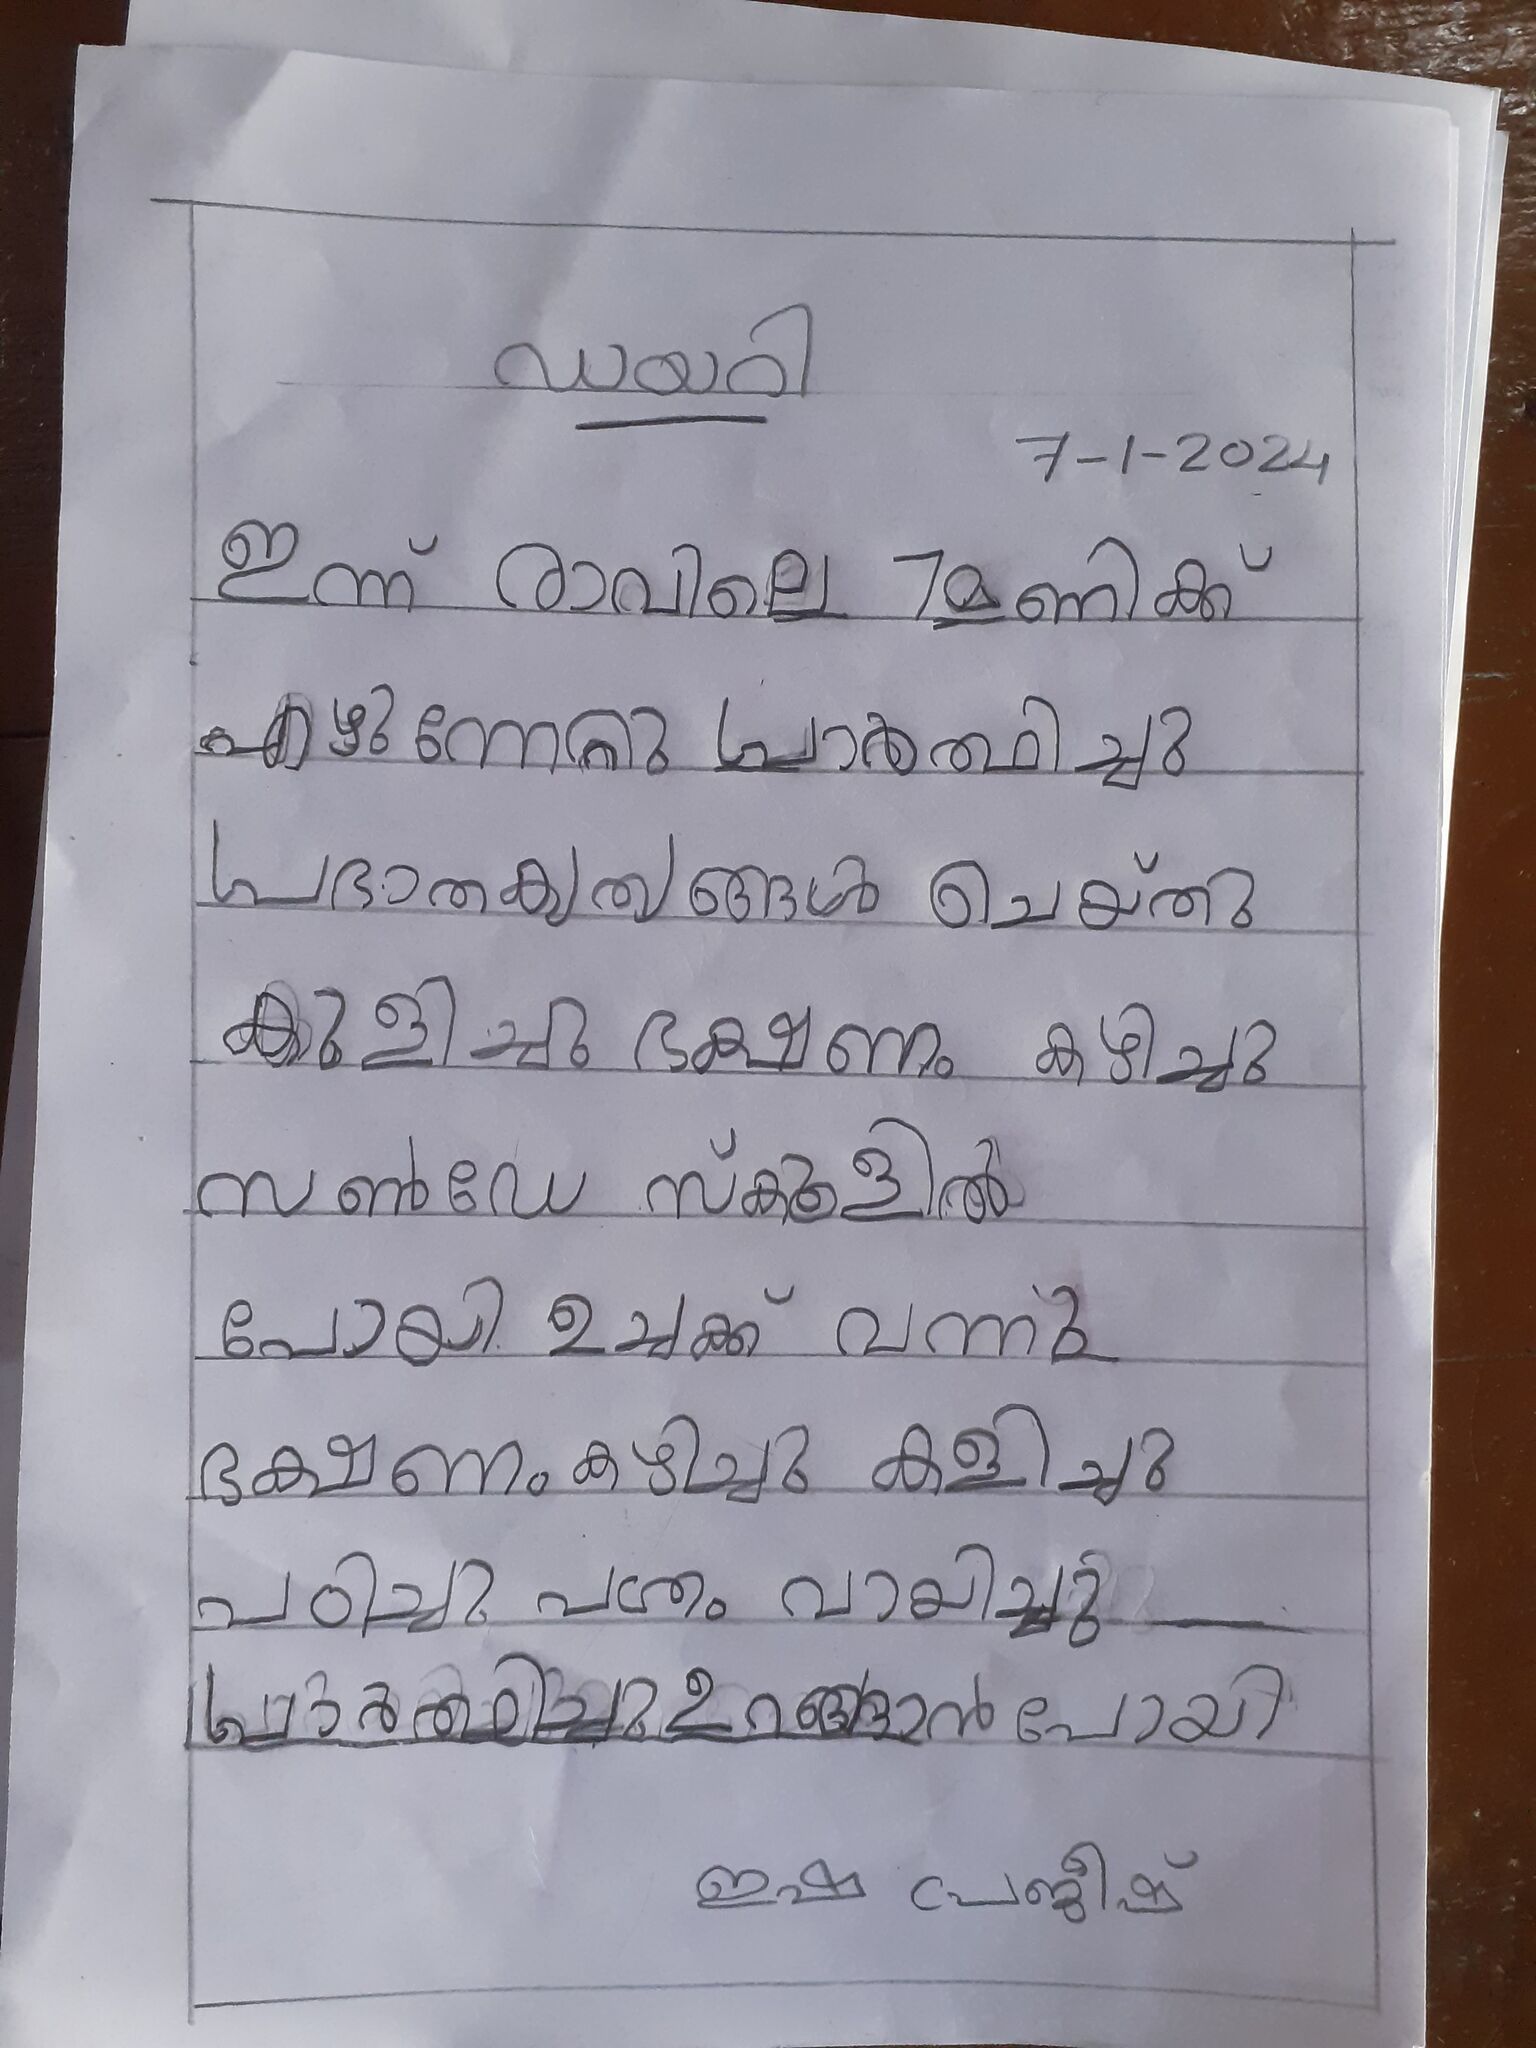 ഡയറി
7-1-2024
ഇന്ന് രാവിലെ 7മണിക്ക്
എഴുന്നേറ്റു പ്രാർത്ഥിച്ചു
പ്രഭാതകൃത്യങ്ങൾ ചെയ്തു
കുളിച്ചു ഭക്ഷണം കഴിച്ചു
സൺഡേ സ്കൂളിൽ
പോയി ഉച്ചക്ക് വന്നു
ഭക്ഷണം കഴിച്ചു കളിച്ചു
പഠിച്ചു പത്രം വായിച്ചു
പ്രാർത്ഥിച്ചു ഉറങ്ങാൻ പോയി
ഇഷ